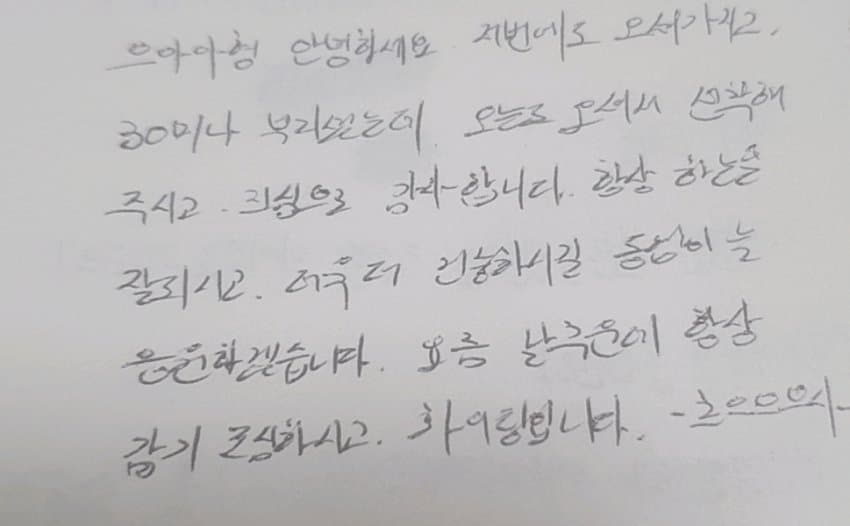 으아아형 안녕하세요. 저번에도 오셔가지고,
30미나 부리셨는데, 오늘도 오셔서 선착해
주시고. 진심으로 감사합니다. 항상 하는일
잘되시고. 더욱더 건승하시길 동생이 늘
응원하겠습니다. 요즘 날추운데 항상
감기 조심하시고. 화이팅입니다.